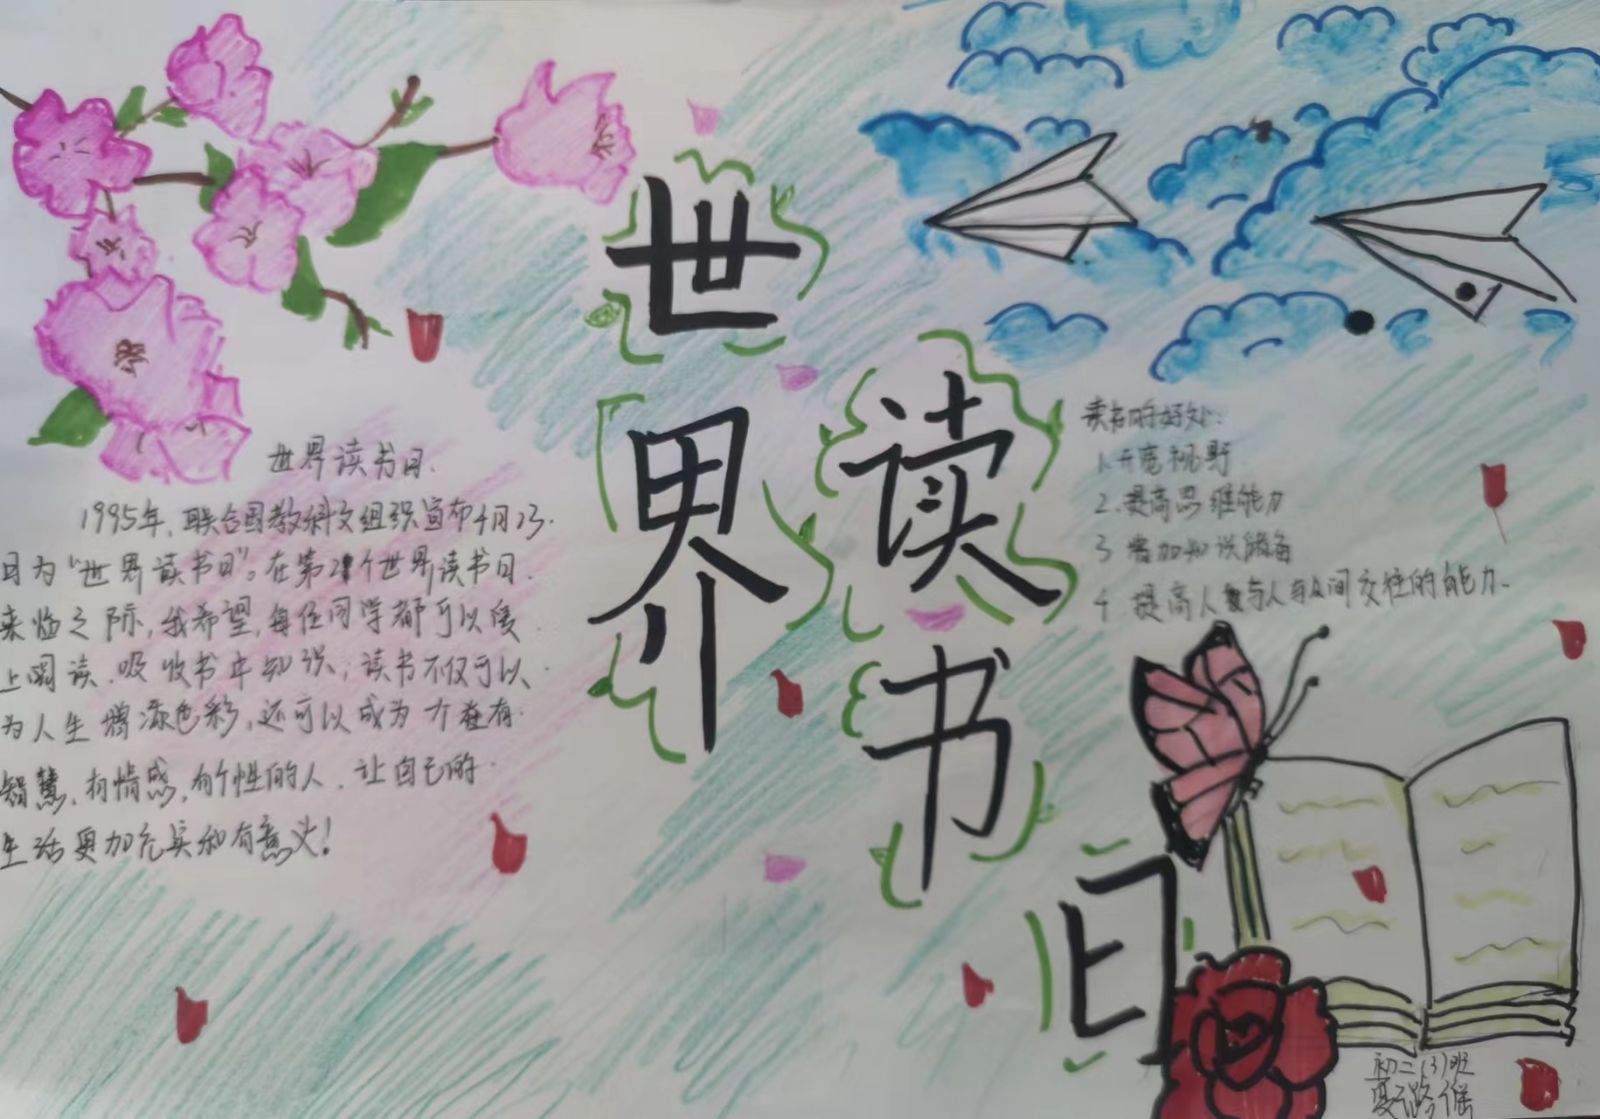 世界读书日
世界读书日.
1995年,联合国教科文组织宣布4月23.
日为“世界读书日”。在第21个世界读书日.
来临之际,我希望,每位同学都可以爱.
上阅读.吸收书中知识,读书不仅可以
为人生增添色彩,还可以成为个有.
智慧,有情感,有个性的人.让自己的.
生活更加充实和有意义!
读书的好处:
1.开宽视野
2.提高思维能力
3 增加知识储备
4 提高人与人与人间交往的能力.
初二(3)班